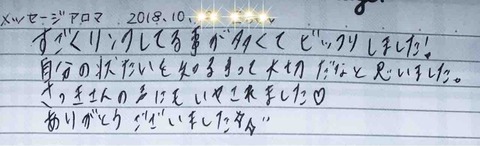 メッセージアロマ 2018.10.
すごくリンクしてる事が多くてビックリしました!
自分の状たいを知るって大切だなと思いました。
さつきさんの声にもいやされました♡
ありがとうございました